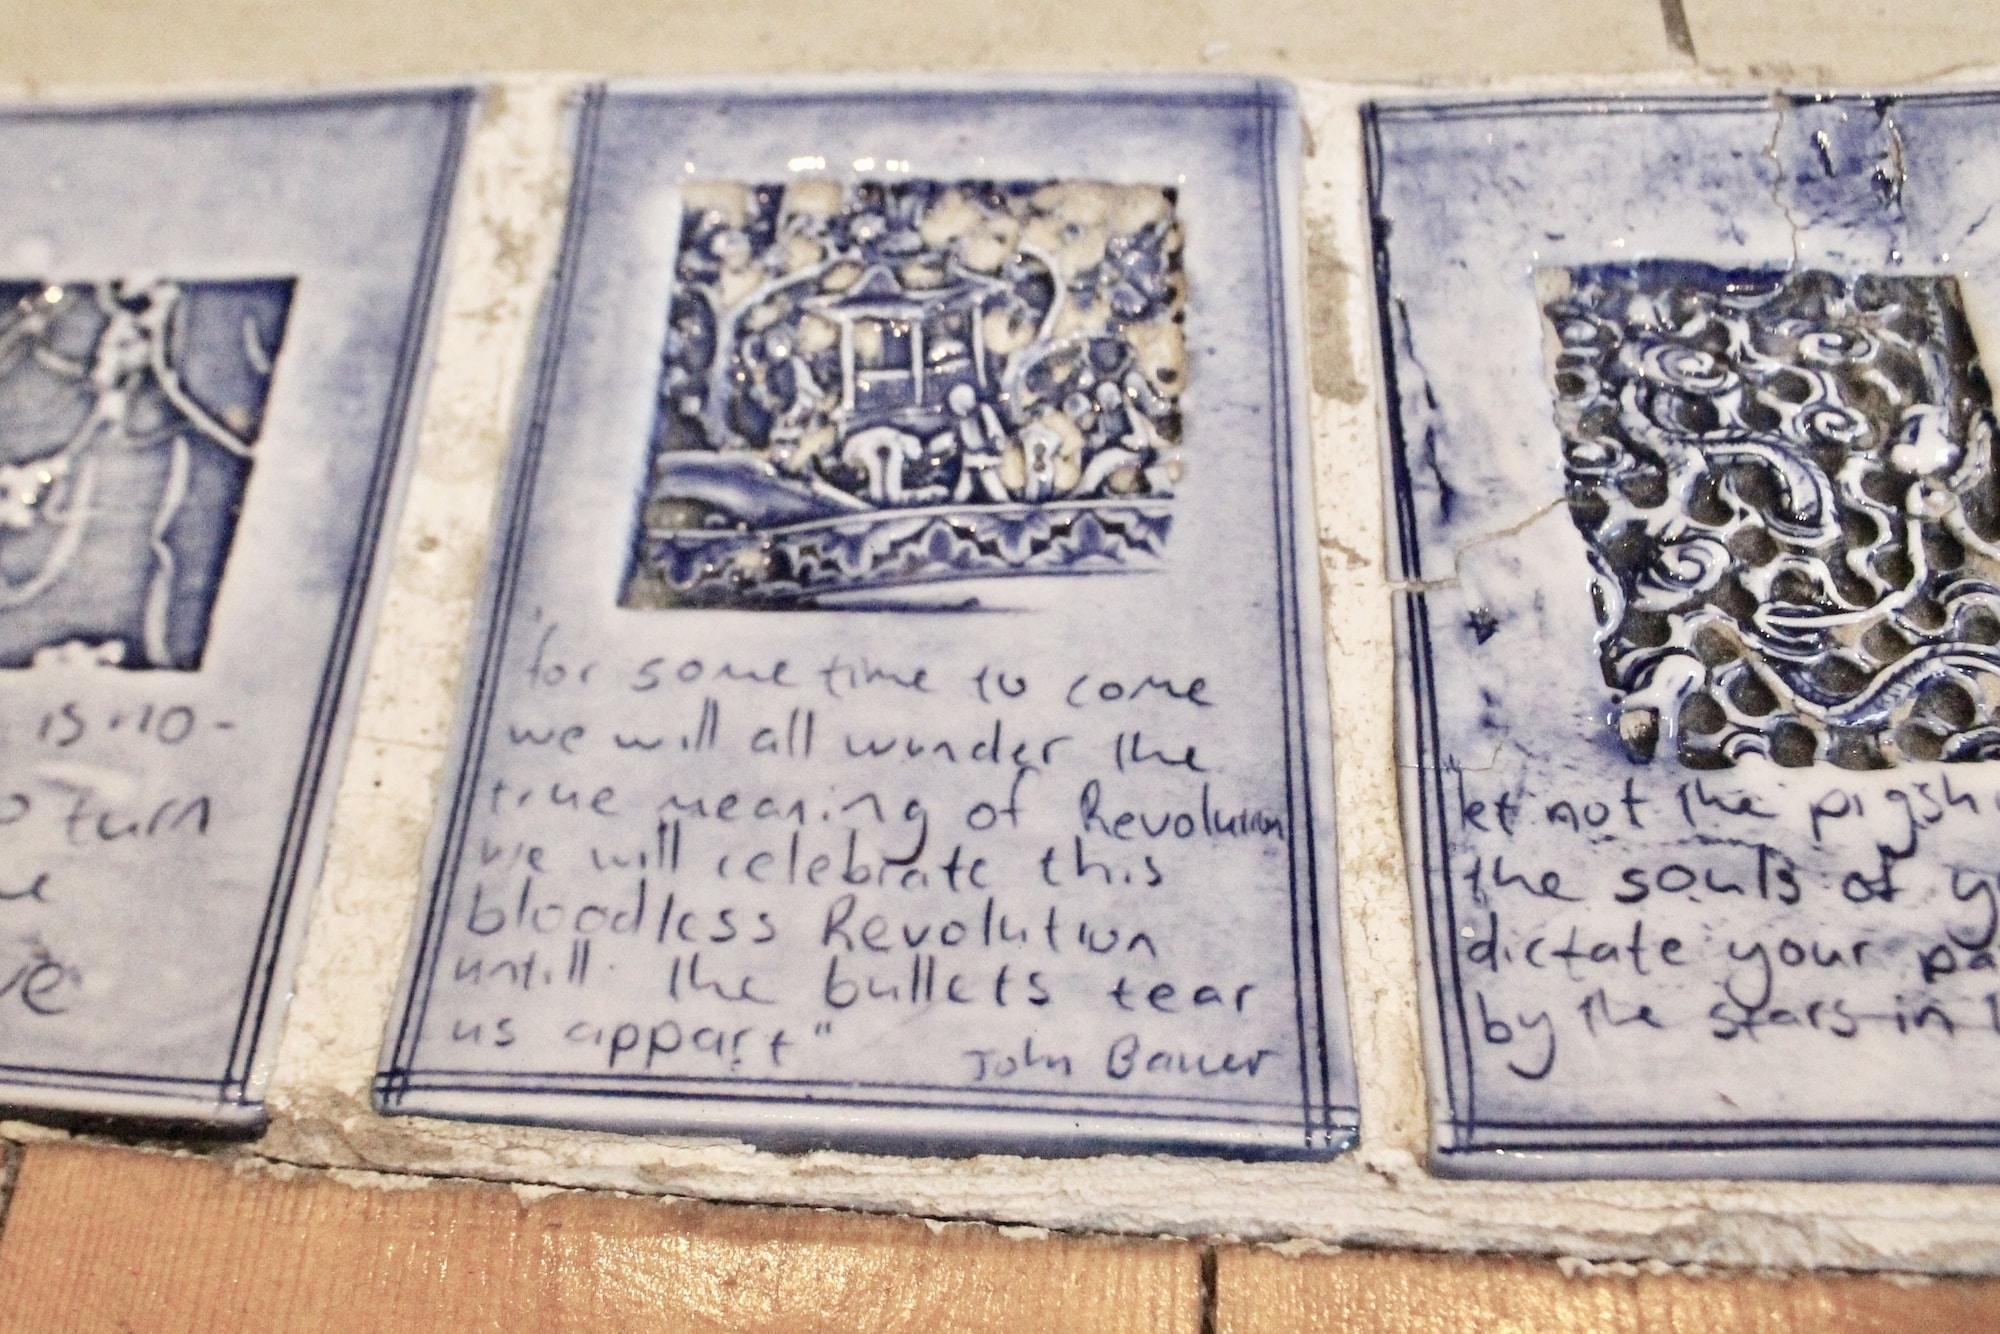 turn
"for some time to come
we will all wonder the
true meaning of Revolution
we will celebrate this
bloodless Revolution
untill the bullets tear
us appart"
John Bauer
let not the
the souls of
dictate your
by the stars in